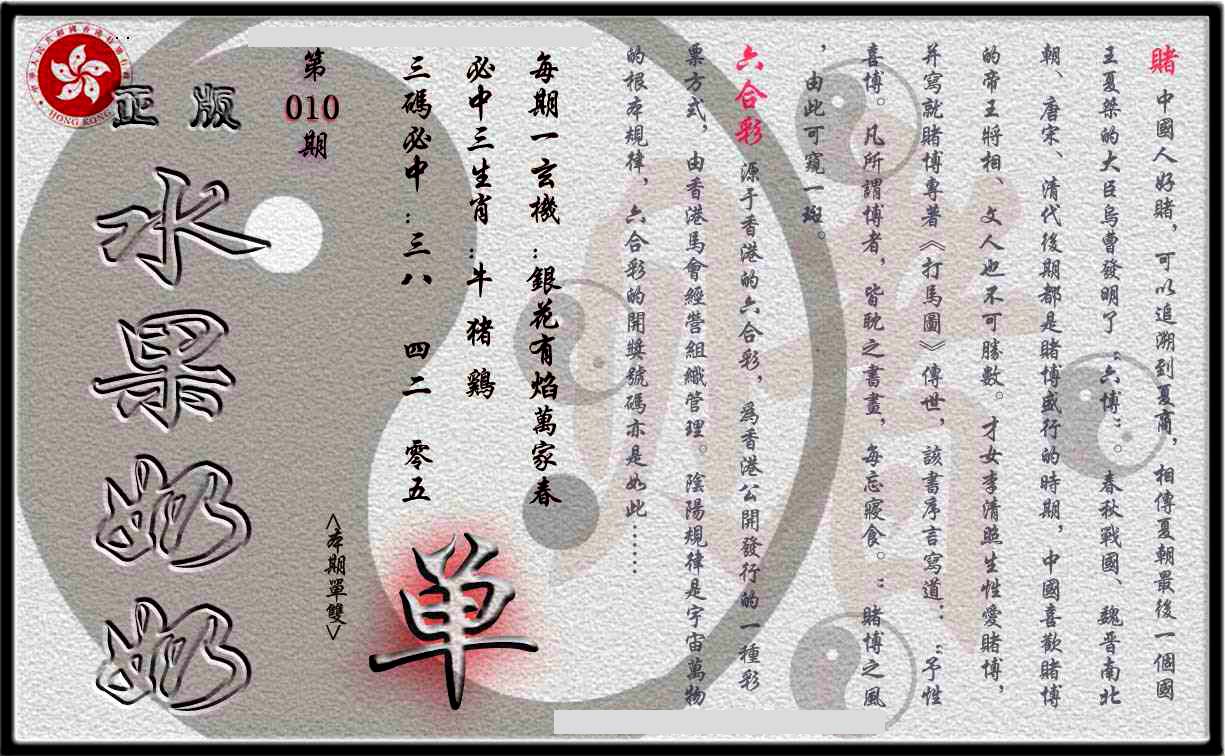 賭 中國人好賭，可以追溯到夏商，相傳夏朝最後一個國
王夏桀的大臣烏曹發明了“六博”。春秋戰國、魏晋南北
朝、唐宋、清代後期都是賭博盛行的時期，中國喜歡賭博
的帝王將相、文人也不可勝數。才女李清照生性愛賭博，
并寫就賭博專著《打馬圖》傳世，該書序言寫道：“予性
喜博。凡所謂博者，皆耽之書畫，每忘寢食。”賭博之風
，由此可窺一斑。
六合彩 源于香港的六合彩，爲香港公開發行的一種彩
票方式，由香港馬會經營組織管理。陰陽規律是宇宙萬物
的根本規律，六合彩的開獎號碼亦是如此……
每期一玄機：銀花有焰萬家春
必中三生肖：牛 猪 鷄
三碼必中：三八 四二 零五
单
<本期單雙>
第
010
期
正版
水果奶奶
HONG KONG